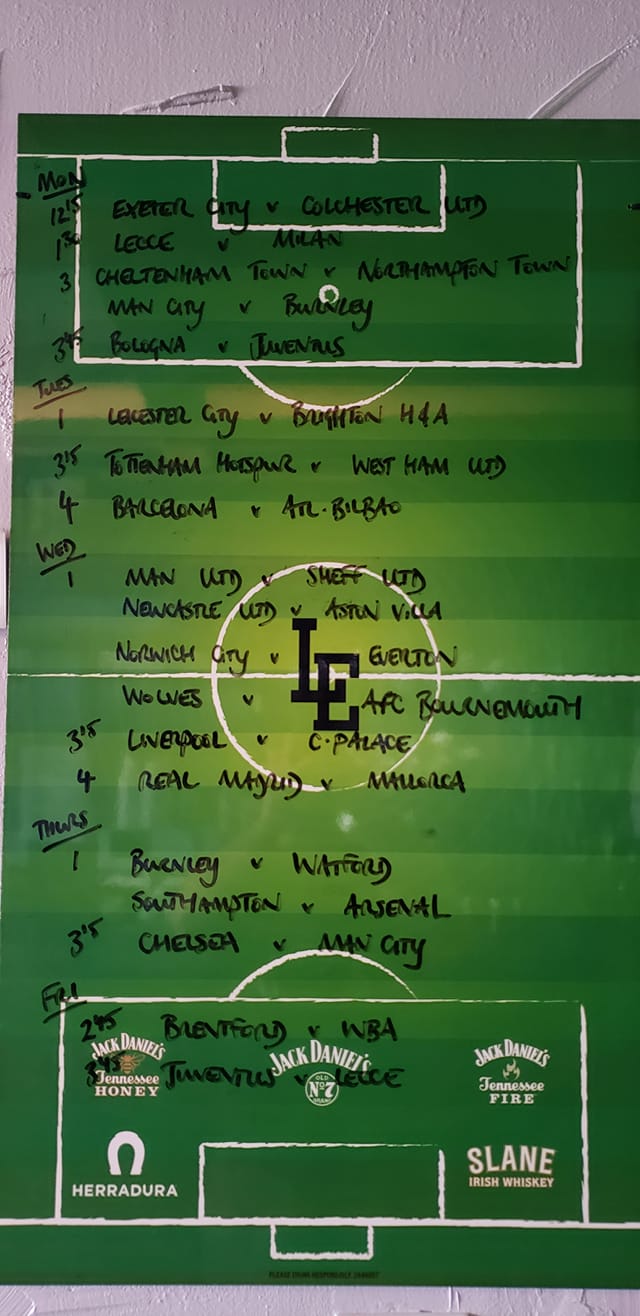 MON
12'15 EXETER CITY v COLCHESTER UTD
1'30 LECCE v MILAN
3 CHELTENHAM TOWN v NORTHAMPTON TOWN
MAN CITY v BURNLEY
3'45 BOLOGNA v JUVENTUS
TUES
1 LEICESTER CITY v BRIGHTON H&A
3'15 TOTTENHAM HOTSPUR v WEST HAM UTD
4 BARCELONA v ATL. BILBAO
WED
1 MAN UTD v SHEFF UTD
NEWCASTLE UTD v ASTON VILLA
NORWICH CITY v EVERTON
LE
WOLVES v AFC BOURNEMOUTH
3'15 LIVERPOOL v C. PALACE
4 REAL MADRID v MALLORCA
THURS
1 BURNLEY v WATFORD
SOUTHAMPTON v ARSENAL
3'15 CHELSEA v MAN CITY
FRI
2'45 BRENTFORD v WBA
3'45 JUVENTUS v LECCE
JACK DANIEL'S Tennessee HONEY
JACK DANIEL'S OLD No.7 BRAND
JACK DANIEL'S Tennessee FIRE
HERRADURA
SLANE
IRISH WHISKEY
PLEASE DRINK RESPONSIBLY